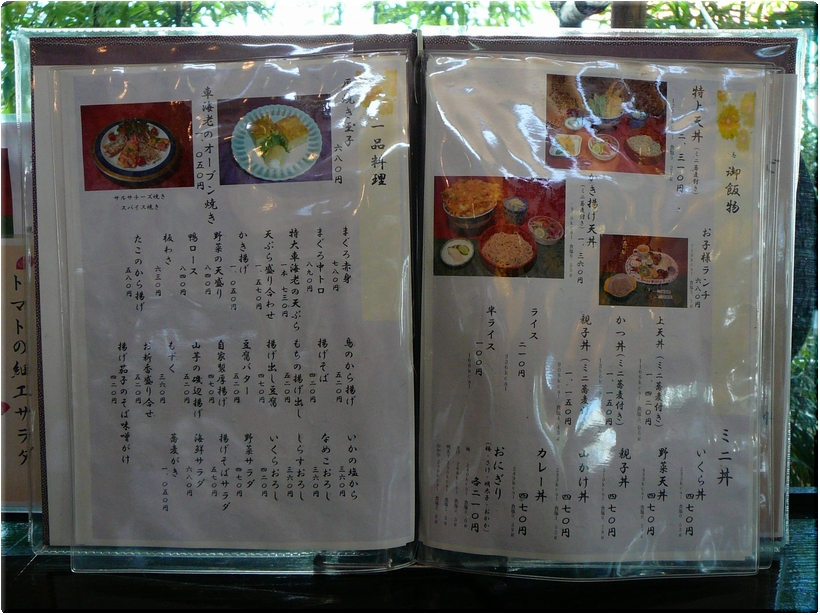 御飯物
特上天丼(ミニ蕎麦付き)
二、三一〇円
かき揚げ天丼
(ミニ蕎麦付き)一、三六〇円
お子様ランチ
六八〇円
上天丼(ミニ蕎麦付き)
一、四二〇円
かつ丼(ミニ蕎麦付き)
一、一五〇円
親子丼(ミニ蕎麦
一、一五〇円
ライス
二一〇円
半ライス
一〇〇円
ミニ丼
いくら丼
四七〇円
野菜天丼
四七〇円
親子丼
四七〇円
山かけ丼
四七〇円
カレー丼
四七〇円
おにぎり
(梅・さけ・明太子・おかか)
各二一〇円
一品料理
焼き玉子
六八〇円
車海老のオーブン焼き
一、〇五〇円
サルサチーズ焼き
スパイス焼き
まぐろ赤身
七八〇円
まぐろ中トロ
八九〇円
特大車海老の天ぷら
一本 七三〇円
天ぷら盛り合わせ
一、五七〇円
かき揚げ
一、〇五〇円
野菜の天盛り
八四〇円
鴨ロース
八四〇円
板わさ
六三〇円
たこのから揚げ
五八〇円
鳥のから揚げ
五二〇円
揚げそば
四二〇円
もちの揚げ出し
五二〇円
揚げ出し豆腐
四七〇円
豆腐バター
五二〇円
自家製厚揚げ
四七〇円
山芋の磯辺揚げ
五二〇円
もずく
三六〇円
お新香盛り合せ
五二〇円
揚げ茄子のそば味噌がけ
四二〇円
いかの塩から
三六〇円
なめこおろし
三六〇円
しらすおろし
三六〇円
いくらおろし
四二〇円
野菜サラダ
四七〇円
揚げそばサラダ
五七〇円
海鮮サラダ
六八〇円
蕎麦がき
一、〇五〇円
トマトの細工サラダ